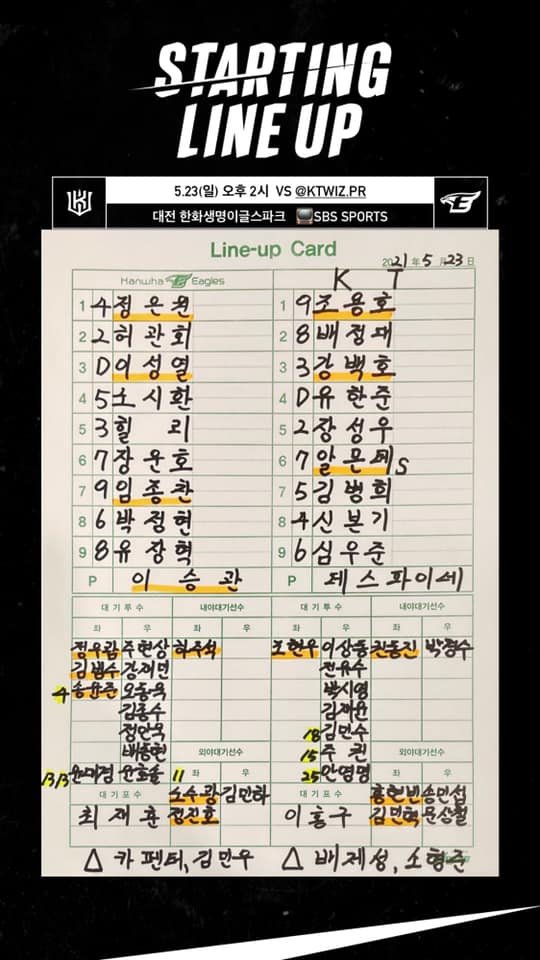 STARTING
LINE UP
5.23(일) 오후 2시 VS @KTWIZ.PR
대전 한화생명이글스파크 SBS SPORTS
Line-up Card
2021년 5월 23일
Hanwha Eagles
K T
1 4 정은원
2 2 허관회
3 D 이성열
4 5 노시환
5 3 힐리
6 7 장운호
7 9 임종찬
8 6 박정현
9 8 유장혁
P 이승관
1 9 조용호
2 8 배정대
3 3 강백호
4 D 유한준
5 2 장성우
6 7 알몬테 S
7 5 김병희
8 4 신본기
9 6 심우준
P 데스파이네
대기투수 내야대기선수
좌 우 좌 우
정우람 주현상 하주석
김범수 강재민
4 송윤준 오동욱
김종수
정인욱
배동현
13 13 윤대경 윤호솔
외야대기선수
11 좌 우
대기포수
노수광 김민하
최재훈 정진호
△ 카펜터, 김민우
대기투수 내야대기선수
좌 우 좌 우
조현우 이상동 천동진 박경수
전유수
박시영
김재윤
18 김민수
15 주권
25 안영명
외야대기선수
좌 우
대기포수
홍현빈 송민섭
이홍구 김민혁 문상철
△ 배제성, 소형준